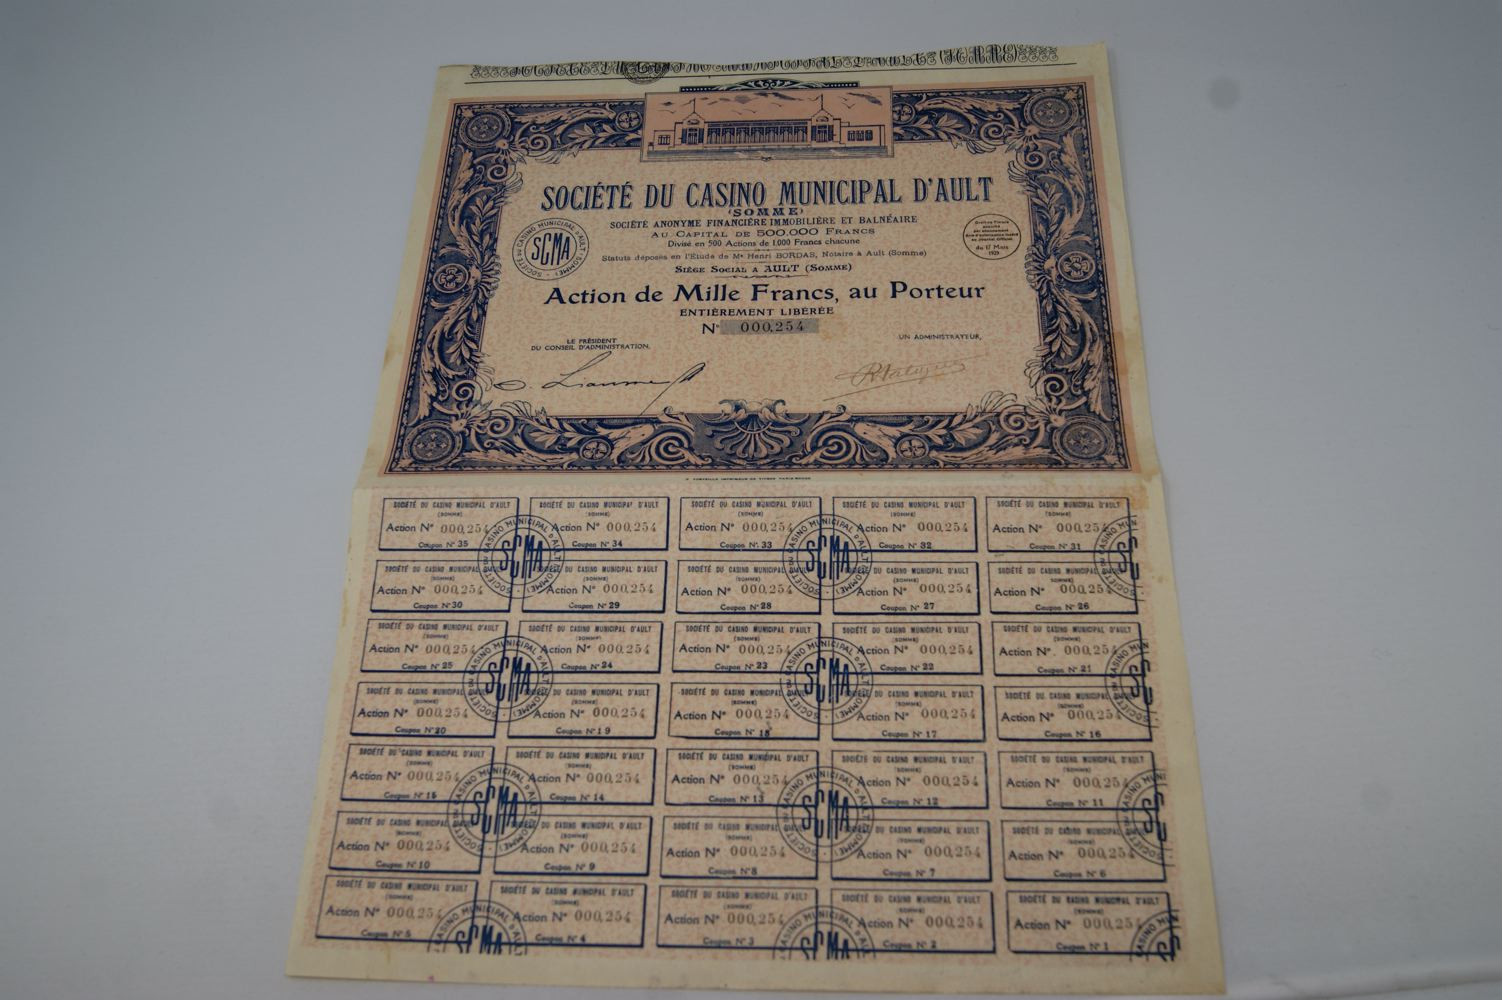 SOCIÉTÉ DU CASINO MUNICIPAL D'AULT
(SOMME)
SOCIÉTÉ ANONYME FINANCIÈRE IMMOBILIÈRE ET BALNÉAIRE
AU CAPITAL DE 500.000 FRANCS
Divisé en 500 Actions de 1.000 Francs chacune
Statuts déposés en l'Étude de Me Henri BORDAS, Notaire à Ault (Somme)
SIÈGE SOCIAL A AULT (SOMME)
SOCIÉTÉ DU CASINO MUNICIPAL D'AULT (SOMME)
SCMA
du 17 Mars
1929
Action de Mille Francs, au Porteur
ENTIÈREMENT LIBÉRÉE
N° 000,254
LE PRÉSIDENT
DU CONSEIL D'ADMINISTRATION,
UN ADMINISTRATEUR,
SOCIÉTÉ DU CASINO MUNICIPAL D'AULT
(SOMME)
Action N° 000,254
Coupon N° 35
SOCIÉTÉ DU CASINO MUNICIPAL D'AULT
(SOMME)
Action N° 000,254
Coupon N° 34
SOCIÉTÉ DU CASINO MUNICIPAL D'AULT
(SOMME)
Action N° 000,254
Coupon N° 33
SOCIÉTÉ DU CASINO MUNICIPAL D'AULT
(SOMME)
Action N° 000,254
Coupon N° 32
SOCIÉTÉ DU CASINO MUNICIPAL D'AULT
(SOMME)
Action N° 000,254
Coupon N° 31
SOCIÉTÉ DU CASINO MUNICIPAL D'AULT
(SOMME)
Action N° 000,254
Coupon N° 30
SOCIÉTÉ DU CASINO MUNICIPAL D'AULT
(SOMME)
Action N° 000,254
Coupon N° 29
SOCIÉTÉ DU CASINO MUNICIPAL D'AULT
(SOMME)
Action N° 000,254
Coupon N° 28
SOCIÉTÉ DU CASINO MUNICIPAL D'AULT
(SOMME)
Action N° 000,254
Coupon N° 27
SOCIÉTÉ DU CASINO MUNICIPAL D'AULT
(SOMME)
Action N° 000,254
Coupon N° 26
SOCIÉTÉ DU CASINO MUNICIPAL D'AULT
(SOMME)
Action N° 000,254
Coupon N° 25
SOCIÉTÉ DU CASINO MUNICIPAL D'AULT
(SOMME)
Action N° 000,254
Coupon N° 24
SOCIÉTÉ DU CASINO MUNICIPAL D'AULT
(SOMME)
Action N° 000,254
Coupon N° 23
SOCIÉTÉ DU CASINO MUNICIPAL D'AULT
(SOMME)
Action N° 000,254
Coupon N° 22
SOCIÉTÉ DU CASINO MUNICIPAL D'AULT
(SOMME)
Action N° 000,254
Coupon N° 21
SOCIÉTÉ DU CASINO MUNICIPAL D'AULT
(SOMME)
Action N° 000,254
Coupon N° 20
SOCIÉTÉ DU CASINO MUNICIPAL D'AULT
(SOMME)
Action N° 000,254
Coupon N° 19
SOCIÉTÉ DU CASINO MUNICIPAL D'AULT
(SOMME)
Action N° 000,254
Coupon N° 18
SOCIÉTÉ DU CASINO MUNICIPAL D'AULT
(SOMME)
Action N° 000,254
Coupon N° 17
SOCIÉTÉ DU CASINO MUNICIPAL D'AULT
(SOMME)
Action N° 000,254
Coupon N° 16
SOCIÉTÉ DU CASINO MUNICIPAL D'AULT
(SOMME)
Action N° 000,254
Coupon N° 15
SOCIÉTÉ DU CASINO MUNICIPAL D'AULT
(SOMME)
Action N° 000,254
Coupon N° 14
SOCIÉTÉ DU CASINO MUNICIPAL D'AULT
(SOMME)
Action N° 000,254
Coupon N° 13
SOCIÉTÉ DU CASINO MUNICIPAL D'AULT
(SOMME)
Action N° 000,254
Coupon N° 12
SOCIÉTÉ DU CASINO MUNICIPAL D'AULT
(SOMME)
Action N° 000,254
Coupon N° 11
SOCIÉTÉ DU CASINO MUNICIPAL D'AULT
(SOMME)
Action N° 000,254
Coupon N° 10
SOCIÉTÉ DU CASINO MUNICIPAL D'AULT
(SOMME)
Action N° 000,254
Coupon N° 9
SOCIÉTÉ DU CASINO MUNICIPAL D'AULT
(SOMME)
Action N° 000,254
Coupon N° 8
SOCIÉTÉ DU CASINO MUNICIPAL D'AULT
(SOMME)
Action N° 000,254
Coupon N° 7
SOCIÉTÉ DU CASINO MUNICIPAL D'AULT
(SOMME)
Action N° 000,254
Coupon N° 6
SOCIÉTÉ DU CASINO MUNICIPAL D'AULT
(SOMME)
Action N° 000,254
Coupon N° 5
SOCIÉTÉ DU CASINO MUNICIPAL D'AULT
(SOMME)
Action N° 000,254
Coupon N° 4
SOCIÉTÉ DU CASINO MUNICIPAL D'AULT
(SOMME)
Action N° 000,254
Coupon N° 3
SOCIÉTÉ DU CASINO MUNICIPAL D'AULT
(SOMME)
Action N° 000,254
Coupon N° 2
SOCIÉTÉ DU CASINO MUNICIPAL D'AULT
(SOMME)
Action N° 000,254
Coupon N° 1